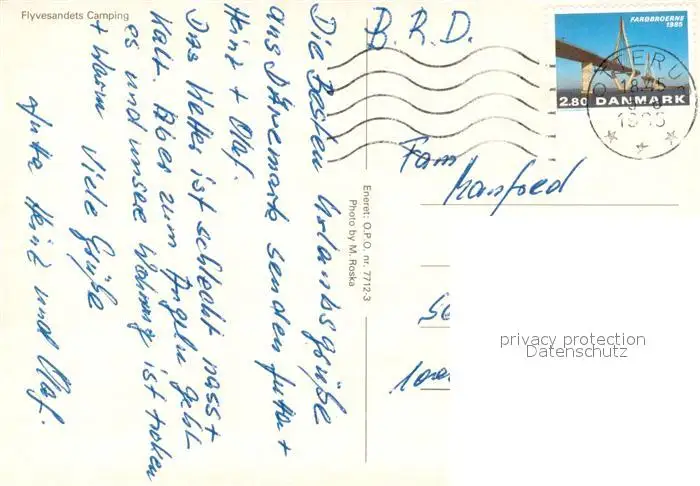 Flyvesandets Camping
Die Besten Urlaubsgrüße
aus Dänemark senden Jutta +
Heinz + Olaf.
Das Wetter ist schlecht nasst
kalt. Aber zum Angeln geht
es und unsere Wohnung ist troken
+ warm
Viele Grüße
Jutta Heinz und Olaf.
Eneret: O.P.O. nr. 7712-3
Photo by M. Roska
B.R.D.
FARØBROERNE
1985
2.80 DANMARK
18-45
Fam
Manfred
privacy protection
Datenschutz